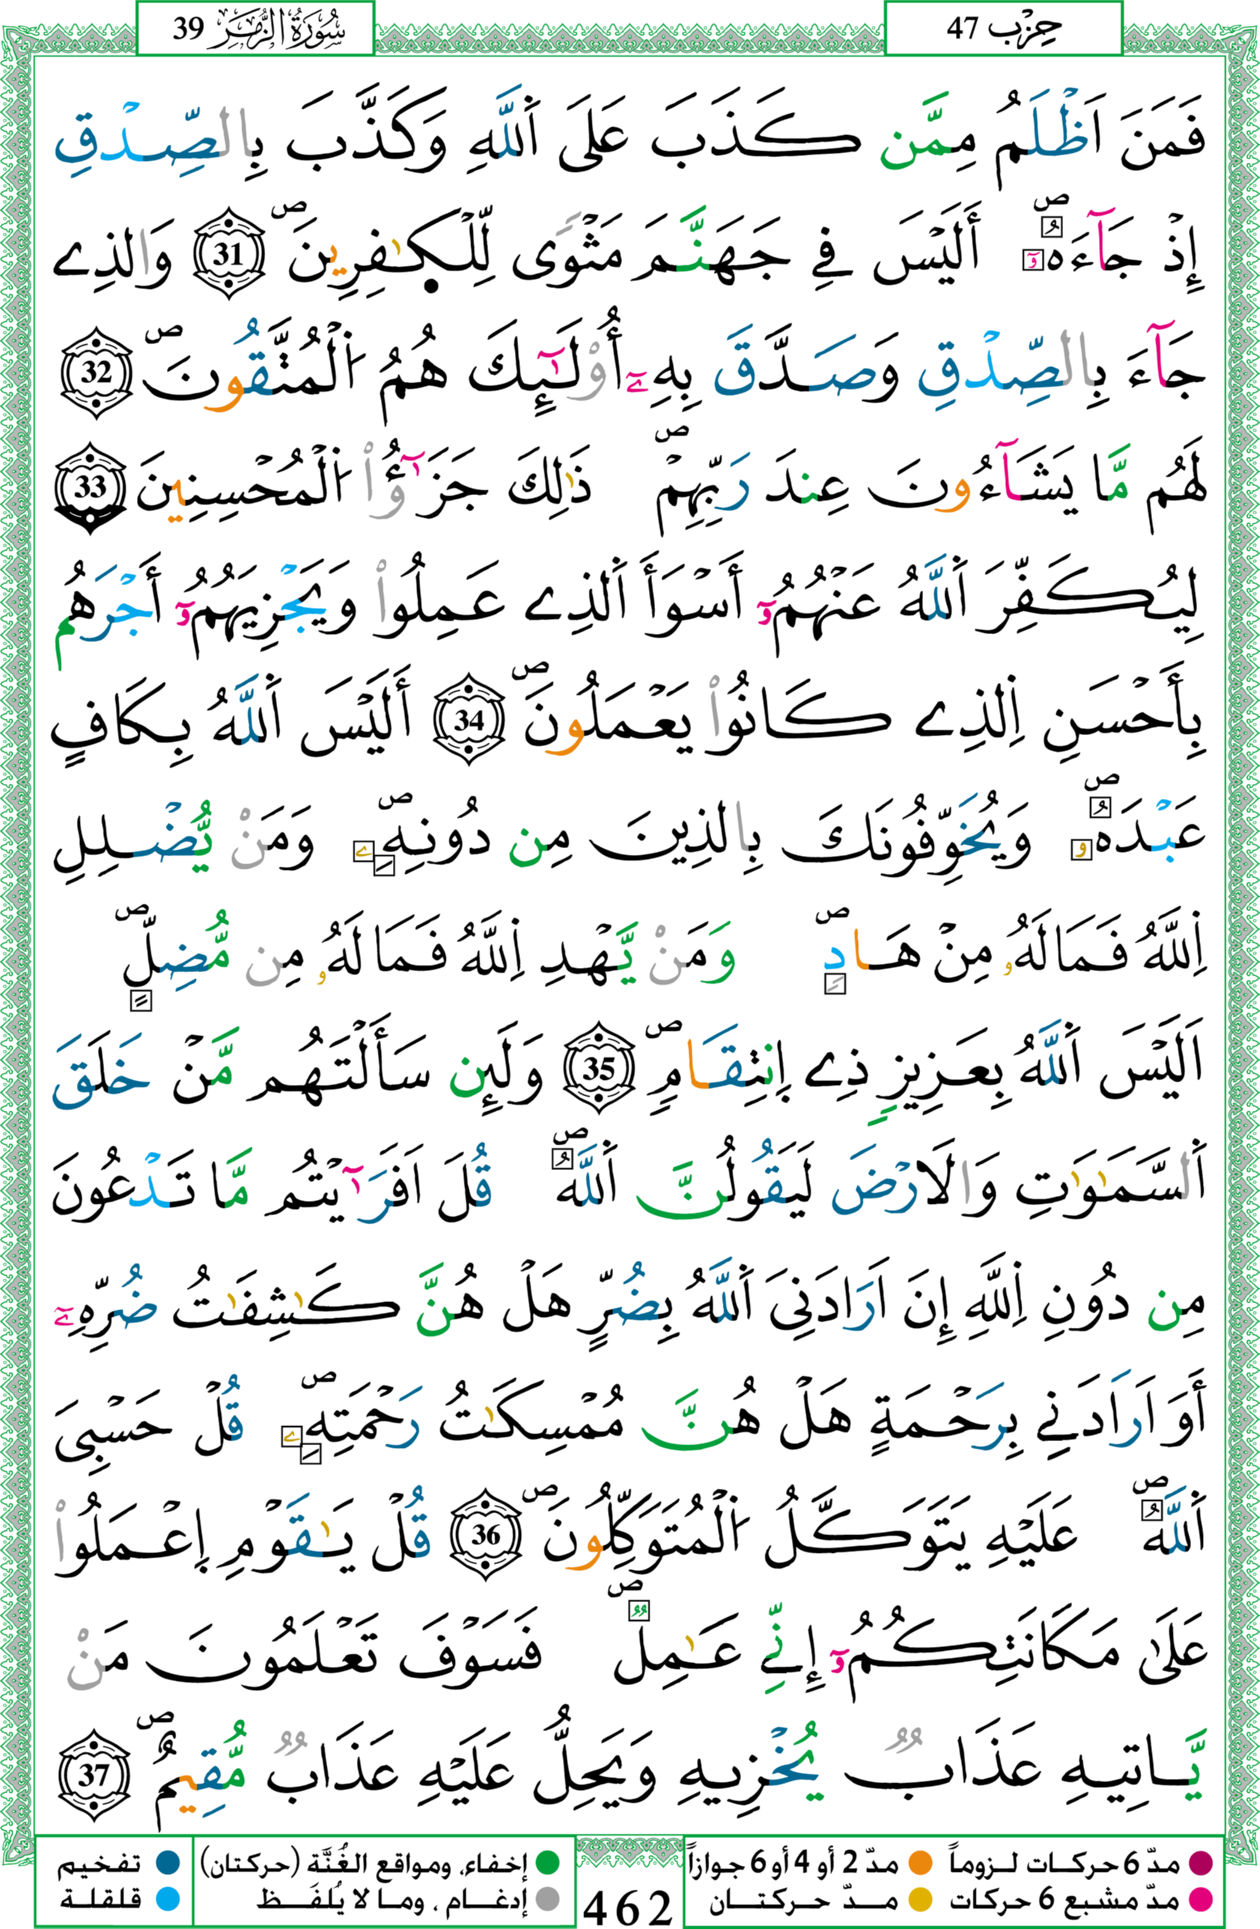 حِزْب 47
سُورَةُ الزُّمَرِ 39
فَمَنَ اَظْلَمُ مِمَّن كَذَبَ عَلَى اَ۬للَّهِ وَكَذَّبَ بِالصِّدْقِ
إِذْ جَآءَهُۥٓ أَلَيْسَ فِے جَهَنَّمَ مَثْوًى لِّلْكٰفِرِينَ 31 وَالذِے
جَآءَ بِالصِّدْقِ وَصَدَّقَ بِهِۦٓ أُوْلَٰٓئِكَ هُمُ اُ۬لْمُتَّقُونَ 32
لَهُم مَّا يَشَآءُونَ عِندَ رَبِّهِمْ ذَٰلِكَ جَزَٰٓؤُاْ اُ۬لْمُحْسِنِينَ 33
لِيُكَفِّرَ اَ۬للَّهُ عَنْهُمُۥٓ أَسْوَأَ اَ۬لذِے عَمِلُواْ وَيَجْزِيَهُمُۥٓ أَجْرَهُم
بِأَحْسَنِ اِ۬لذِے كَانُواْ يَعْمَلُونَ 34 أَلَيْسَ اَ۬للَّهُ بِكَافٍ
عَبْدَهُۥ وَيُخَوِّفُونَكَ بِالذِينَ مِن دُونِهِۦ وَمَنْ يُّضْلِلِ
اِ۬للَّهُ فَمَا لَهُۥ مِنْ هَادٍ وَمَنْ يَّهْدِ اِ۬للَّهُ فَمَا لَهُۥ مِن مُّضِلٍّ
اَلَيْسَ اَ۬للَّهُ بِعَزِيزٍ ذِے اِ۪نتِقَامٍ 35 وَلَئِن سَأَلْتَهُم مَّنْ خَلَقَ
اَ۬لسَّمَٰوَٰتِ وَالَارْضَ لَيَقُولُنَّ اَ۬للَّهُ قُلَ اَفَرَٰٓيْتُم مَّا تَدْعُونَ
مِن دُونِ اِ۬للَّهِ إِنَ اَرَادَنِيَ اَ۬للَّهُ بِضُرٍّ هَلْ هُنَّ كَٰشِفَٰتُ ضُرِّهِۦٓ
أَوَ اَرَادَنِے بِرَحْمَةٍ هَلْ هُنَّ مُمْسِكَٰتُ رَحْمَتِهِۦ قُلْ حَسْبِيَ
اَ۬للَّهُ عَلَيْهِ يَتَوَكَّلُ اُ۬لْمُتَوَكِّلُونَ 36 قُلْ يَٰقَوْمِ اِ۪عْمَلُواْ
عَلَىٰ مَكَانَتِكُمُۥٓ إِنِّے عَٰمِلٌ فَسَوْفَ تَعْلَمُونَ مَنْ
يَّاتِيهِ عَذَابٌ يُخْزِيهِ وَيَحِلُّ عَلَيْهِ عَذَابٌ مُّقِيمٌ 37
مدّ 6 حركات لـزوماً مدّ 2 أو 4 أو 6 جوازاً إخفاء، ومواقع الغُنَّة (حركتان) تفخيم
مدّ مشبع 6 حركات مـدّ حركتـان إدغـام ، ومـا لا يُلفَـظ قلقلة
462